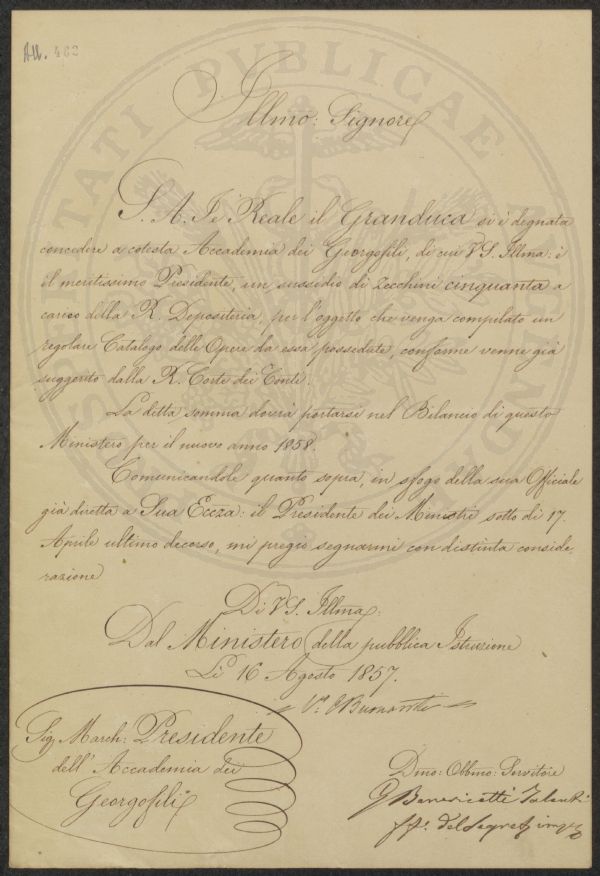 All. 462
Illmo: Signore
S. A. I. e Reale il Granduca si è degnata
concedere a cotesta Accademia dei Georgofili, di cui V. S. Illma: è
il meritissimo Presidente, un sussidio di Zecchini cinquanta a
carico della R. Depositeria, per l'oggetto che venga compilato un
regolare Catalogo delle Opere da essa possedute, conforme venne già
suggerito dalla R. Corte dei Conti.
La detta somma dovrà portarsi nel Bilancio di questo
Ministero per il nuovo anno 1858.
Comunicandole quanto sopra, in sfogo della sua Officiale
già diretta a Sua Eccza: il Presidente dei Ministri sotto dì 17.
Aprile ultimo decorso, mi pregio segnarmi con distinta conside,
razione
Di V. S. Illma:
Dal Ministero della pubblica Istruzione
Lì 16 Agosto 1857.
Sig. March: Presidente
dell'Accademia dei
Georgofili
Dmo: Obbmo: Servitore